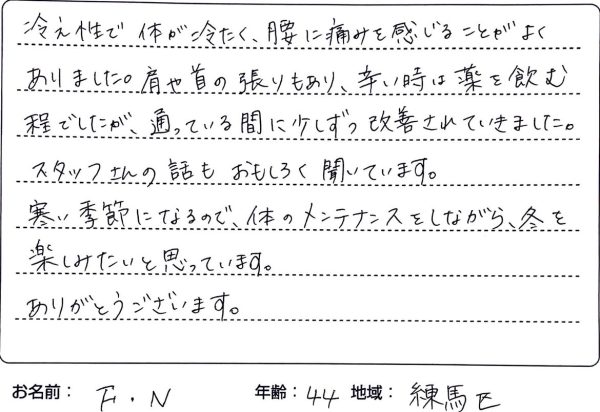 冷え性で 体が冷たく、腰に痛みを感じることがよく
ありました。肩や首の張りもあり、辛い時は薬を飲む
程でしたが、通っている間に少しずつ改善されていきました。
スタッフさんの話も おもしろく聞いています。
寒い季節になるので、体のメンテナンスをしながら、冬を
楽しみたいと思っています。
ありがとうございます。
お名前： F.N 年齢：44 地域：練馬区